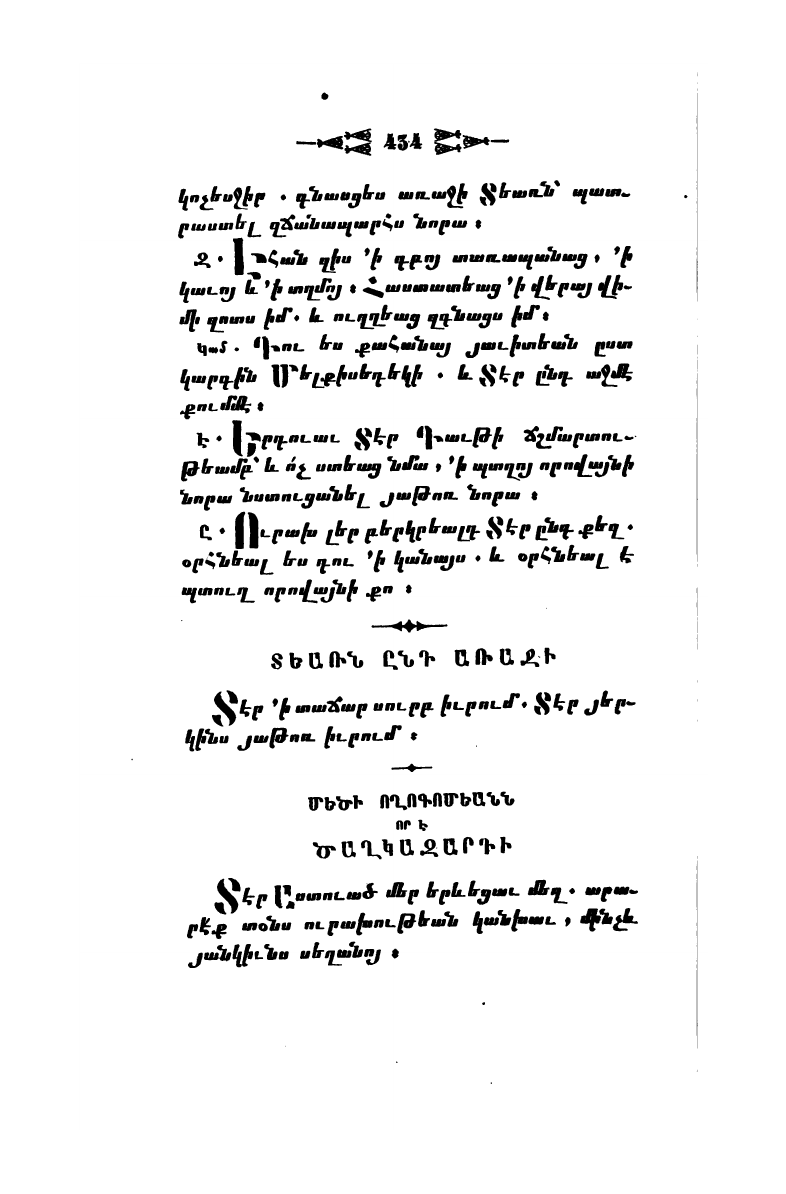 434
կոչեսջիր . գնասցես առաջի Տեառն՝ պատ-
րաստել զՃանապարհս նորա ։
Զ . Եհան զիս ՚ի գբոյ տառապանաց , ՚ի
կաւոյ և ՚ի տղմոյ ։ Հաստատեաց ՚ի վերայ վի-
մի զոտս իմ . և ուղղեաց զգնացս իմ ։
կամ . Դու ես քահանայ յաւիտեան ըստ
կարգին Մելքիսեդեկի . և Տէր ընդ աջմէ
քումմէ ։
Է . Երդուաւ Տէր Դաւթի ճշմարտու-
թեամբ՝ և ո՛չ ստեաց նմա , ՚ի պտղոյ որովայնի
նորա նստուցանել յաթոռ նորա ։
Ը . Ուրախ լեր բերկրեալդ Տէր ընդ քեզ .
օրհնեալ ես դու ՚ի կանայս . և օրհնեալ է
պտուղ որովայնի քո ։
ՏԵԱՌՆ ԸՆԴ ԱՌԱՋԻ
Տէր ՚ի տաճար սուրբ իւրում . Տէր յեր-
կինս յաթոռ իւրում ։
ՄԵԾԻ ՈՂՈԳՈՄԵԱՆՆ
ՈՐ Է
ԾԱՂԿԱԶԱՐԴԻ
Տէր Աստուած մեր երևեցաւ մեզ . արա-
րէ՛ք տօնս ուրախութեան կանխաւ , մինչև
յանկիւնս սեղանոյ ։